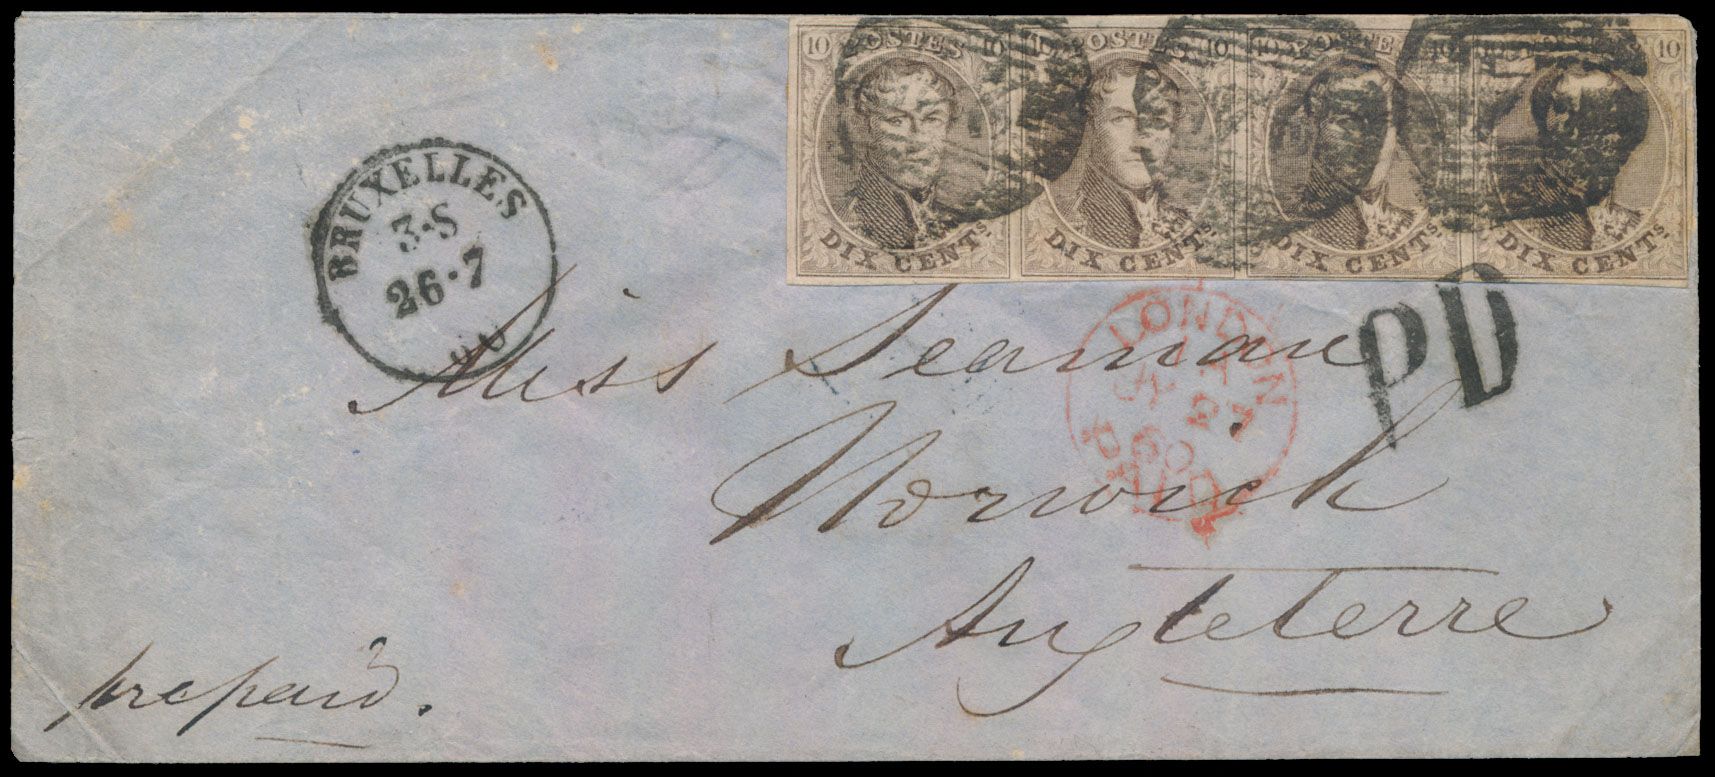 10 POSTES 10 10 POSTES 10 10 POSTES 10 POSTES 10
DIX CENTs. DIX CENTs. DIX CENTs. DIX CENTs.
BRUXELLES
3·S
26·7
PD
LONDON
JY 27
60
PAID
Miss Seaman
Norwich
Angleterre
prepaid.